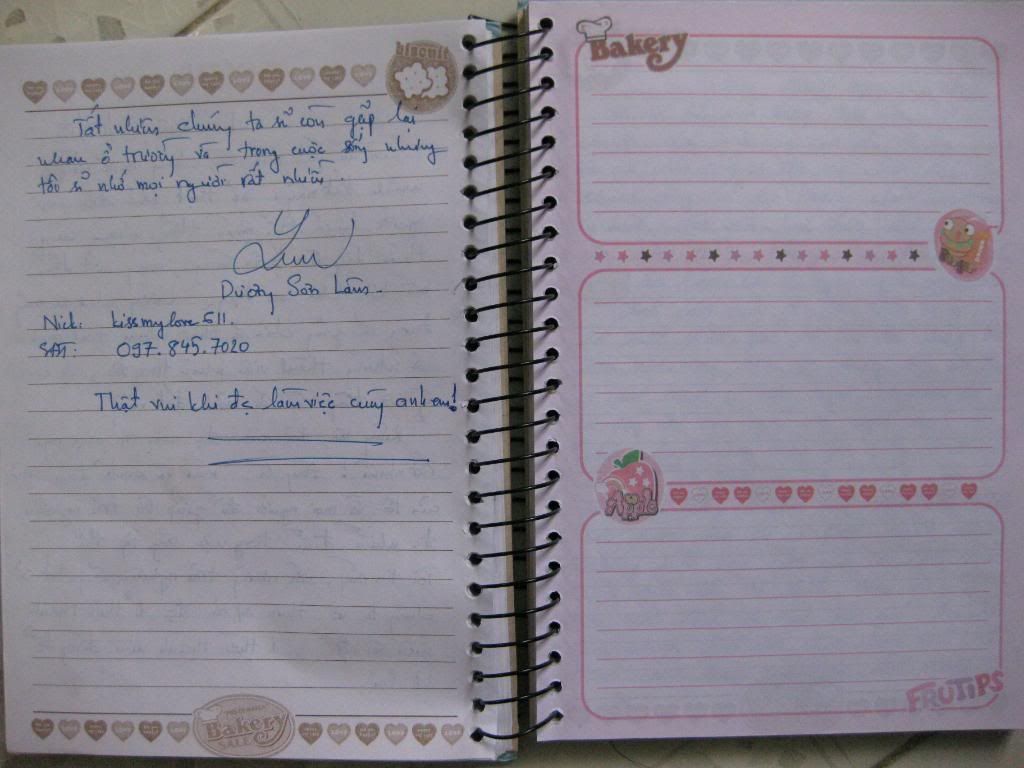 biscuit
Tất nhiên chúng ta sẽ còn gặp lại
nhau ở trường và trong cuộc sống nhưng
tôi sẽ nhớ mọi người rất nhiều.
Dương Sơn Lâm.
Nick: kissmylove611.
SĐT: 097.845.7020
Thật vui khi đc làm việc cùng anh em!
Bakery
SALE
Bakery
Apple
FRUTIPS